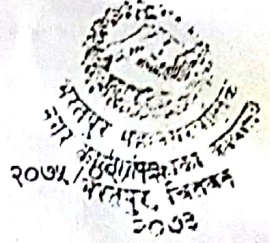 भरतपुर महानगरपालिका
नगर कार्यपालिकाको कार्यालय
२०७५/
भरतपुर, चितवन
२०७३